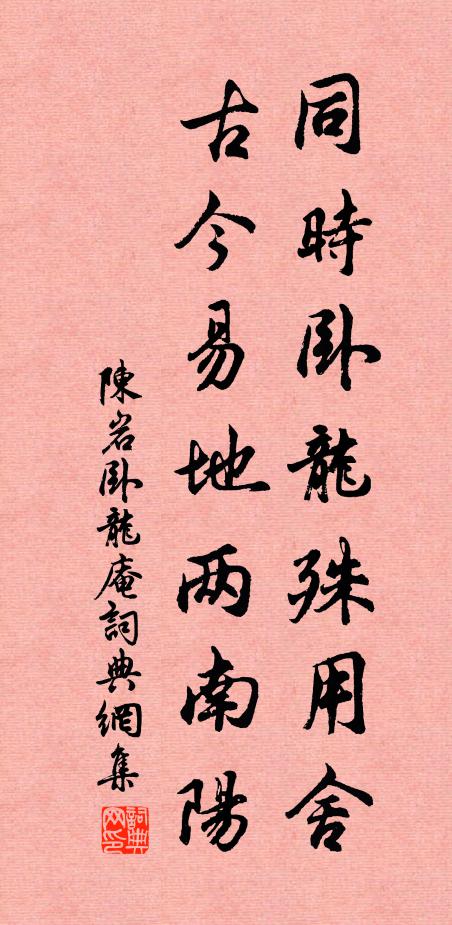 同時卧龍殊用舍
古今易地两南陽
陳岩卧龍庵詞典網集
詞典网印